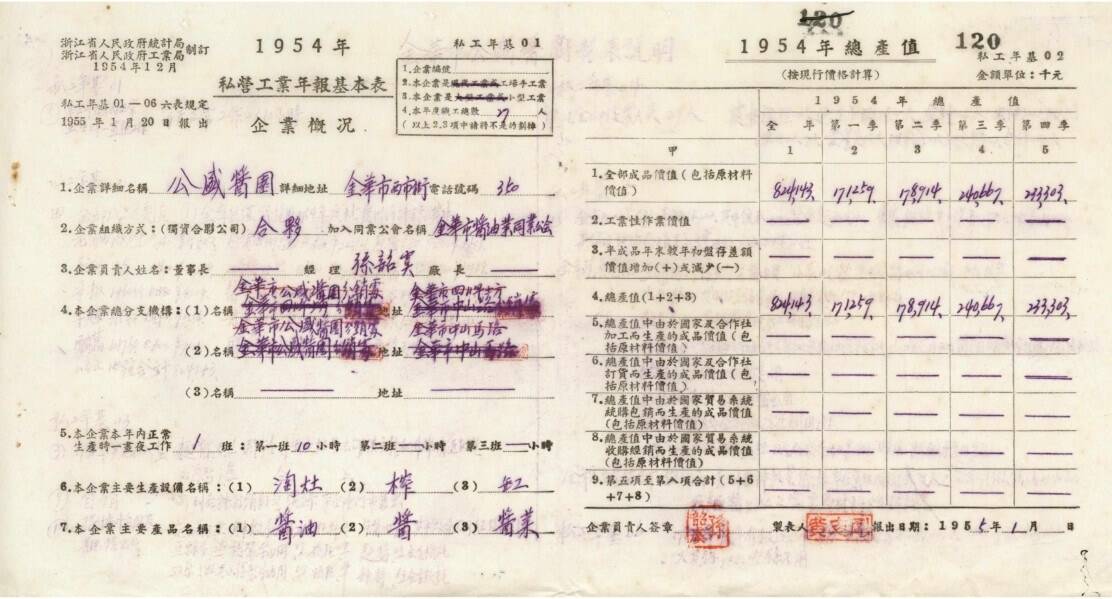 浙江省人民政府統計局
浙江省人民政府工業局 制訂
1954年12月
私工年基01—06六表規定
1955年1月20日報出
1954年
私營工業年報基本表
企業概況
私工年基01
1.企業編號
2.本企業是現代工業或工場手工業
3.本企業是大型工業或小型工業
4.本年度職工總數 7 人
(以上2.3項中請將不是的劃掉)
1.企業詳細名稱 公盛醬園 詳細地址 金華市西市街 電話號碼 350
2.企業組織方式:(獨資合夥公司) 合夥 加入同業公會名稱 金華市醬油業同業公會
3.企業負責人姓名:董事長 —— 經理 孫韶 廠長 ——
金華市公盛醬園分銷處 金華市
4.本企業總分支機構:(1)名稱 地址
金華市公盛醬園分銷處 金華市中山馬路
(2)名稱 金華市公盛醬園 地址 金華市中山馬路
(3)名稱 —— 地址 ——
5.本企業本年內正常
生產時一晝夜工作: 1 班:第一班 10 小時 第二班 — 小時 第三班 — 小時
6.本企業主要生產設備名稱:(1) 淘灶 (2) 榨 (3) 缸
7.本企業主要產品名稱:(1) 醬油 (2) 醬 (3) 醬菜
120
120
1954年總產值
(按現行價格計算)
私工年基02
金額單位:千元
1954年總產值
全年 第一季 第二季 第三季 第四季
甲 1 2 3 4 5
1.全部成品價值(包括原材料
價值) 824,143 71,259 78,914 240,667 433,303
2.工業性作業價值 — — — — —
3.半成品年末較年初盤存差額
價值增加(+)或減少(—) — — — — —
4.總產值(1+2+3) 824,143 71,259 78,914 240,667 433,303
5.總產值中由於國家及合作社
加工而生產的成品價值(包
括原材料價值) — — — — —
6.總產值中由於國家及合作社
訂貨而生產的成品價值(包
括原材料價值) — — — — —
7.總產值中由於國家貿易系統
統購包銷而生產的成品價值
(包括原材料價值) — — — — —
8.總產值中由於國家貿易系統
收購經銷而生產的成品價值
(包括原材料價值) — — — — —
9.第五項至第八項合計(5+6
+7+8) — — — — —
企業負責人簽章 製表人 報出日期:1955年1月 日